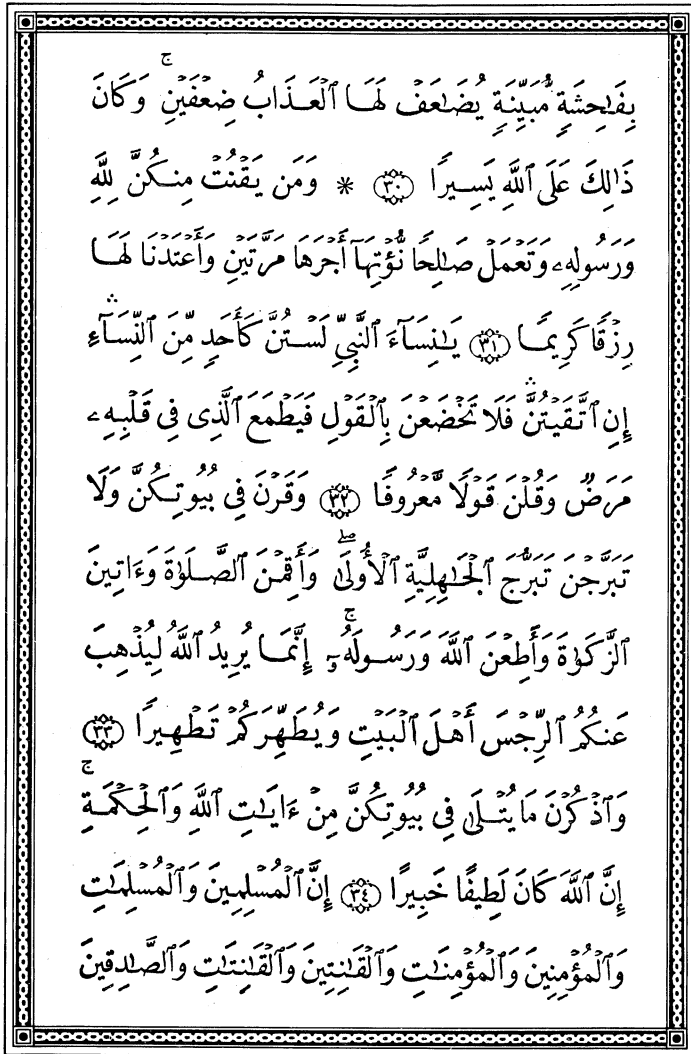 بِفَٰحِشَةٍ مُّبَيِّنَةٍ يُضَٰعَفْ لَهَا ٱلْعَذَابُ ضِعْفَيْنِ ۚ وَكَانَ
ذَٰلِكَ عَلَى ٱللَّهِ يَسِيرًا ۝٣٠ ۞ وَمَن يَقْنُتْ مِنكُنَّ لِلَّهِ
وَرَسُولِهِۦ وَتَعْمَلْ صَٰلِحًا نُّؤْتِهَآ أَجْرَهَا مَرَّتَيْنِ وَأَعْتَدْنَا لَهَا
رِزْقًا كَرِيمًا ۝٣١ يَٰنِسَآءَ ٱلنَّبِىِّ لَسْتُنَّ كَأَحَدٍ مِّنَ ٱلنِّسَآءِ ۛ
إِنِ ٱتَّقَيْتُنَّ ۛ فَلَا تَخْضَعْنَ بِٱلْقَوْلِ فَيَطْمَعَ ٱلَّذِى فِى قَلْبِهِۦ
مَرَضٌ وَقُلْنَ قَوْلًا مَّعْرُوفًا ۝٣٢ وَقَرْنَ فِى بُيُوتِكُنَّ وَلَا
تَبَرَّجْنَ تَبَرُّجَ ٱلْجَٰهِلِيَّةِ ٱلْأُولَىٰ ۖ وَأَقِمْنَ ٱلصَّلَوٰةَ وَءَاتِينَ
ٱلزَّكَوٰةَ وَأَطِعْنَ ٱللَّهَ وَرَسُولَهُۥٓ ۚ إِنَّمَا يُرِيدُ ٱللَّهُ لِيُذْهِبَ
عَنكُمُ ٱلرِّجْسَ أَهْلَ ٱلْبَيْتِ وَيُطَهِّرَكُمْ تَطْهِيرًا ۝٣٣
وَٱذْكُرْنَ مَا يُتْلَىٰ فِى بُيُوتِكُنَّ مِنْ ءَايَٰتِ ٱللَّهِ وَٱلْحِكْمَةِ ۚ
إِنَّ ٱللَّهَ كَانَ لَطِيفًا خَبِيرًا ۝٣٤ إِنَّ ٱلْمُسْلِمِينَ وَٱلْمُسْلِمَٰتِ
وَٱلْمُؤْمِنِينَ وَٱلْمُؤْمِنَٰتِ وَٱلْقَٰنِتِينَ وَٱلْقَٰنِتَٰتِ وَٱلصَّٰدِقِينَ